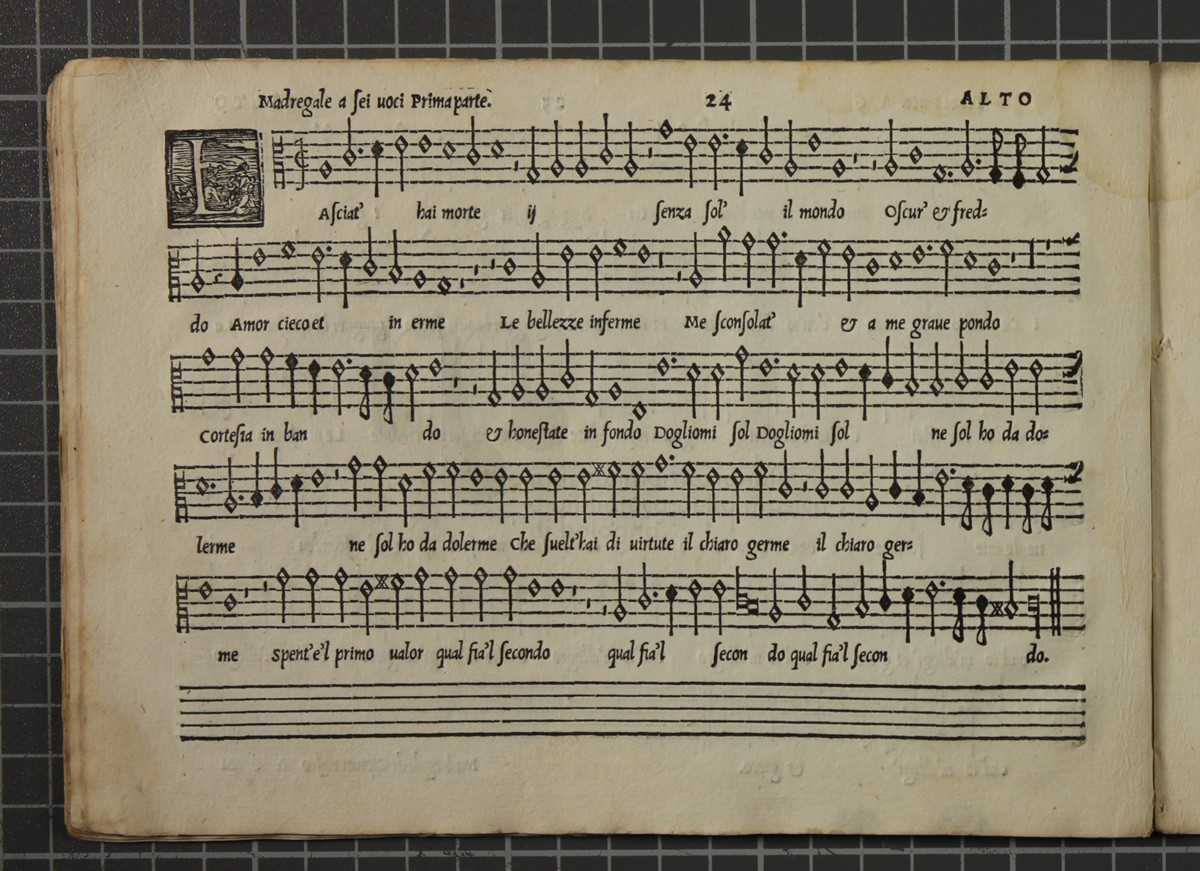 Madregale a sei uoci Prima parte. 24 ALTO
L Asciat' hai morte ij senza sol' il mondo Oscur' & fred=
do Amor cieco et in erme Le bellezze inferme Me sconsolat' & a me graue pondo
Cortesia in ban do & honestate in fondo Dogliomi sol Dogliomi sol ne sol ho da do=
lerme ne sol ho da dolerme Che suelt'hai di uirtute il chiaro germe il chiaro ger=
me spent'e'l primo ualor qual fia'l secondo qual fia'l secon do qual fia'l secon do.